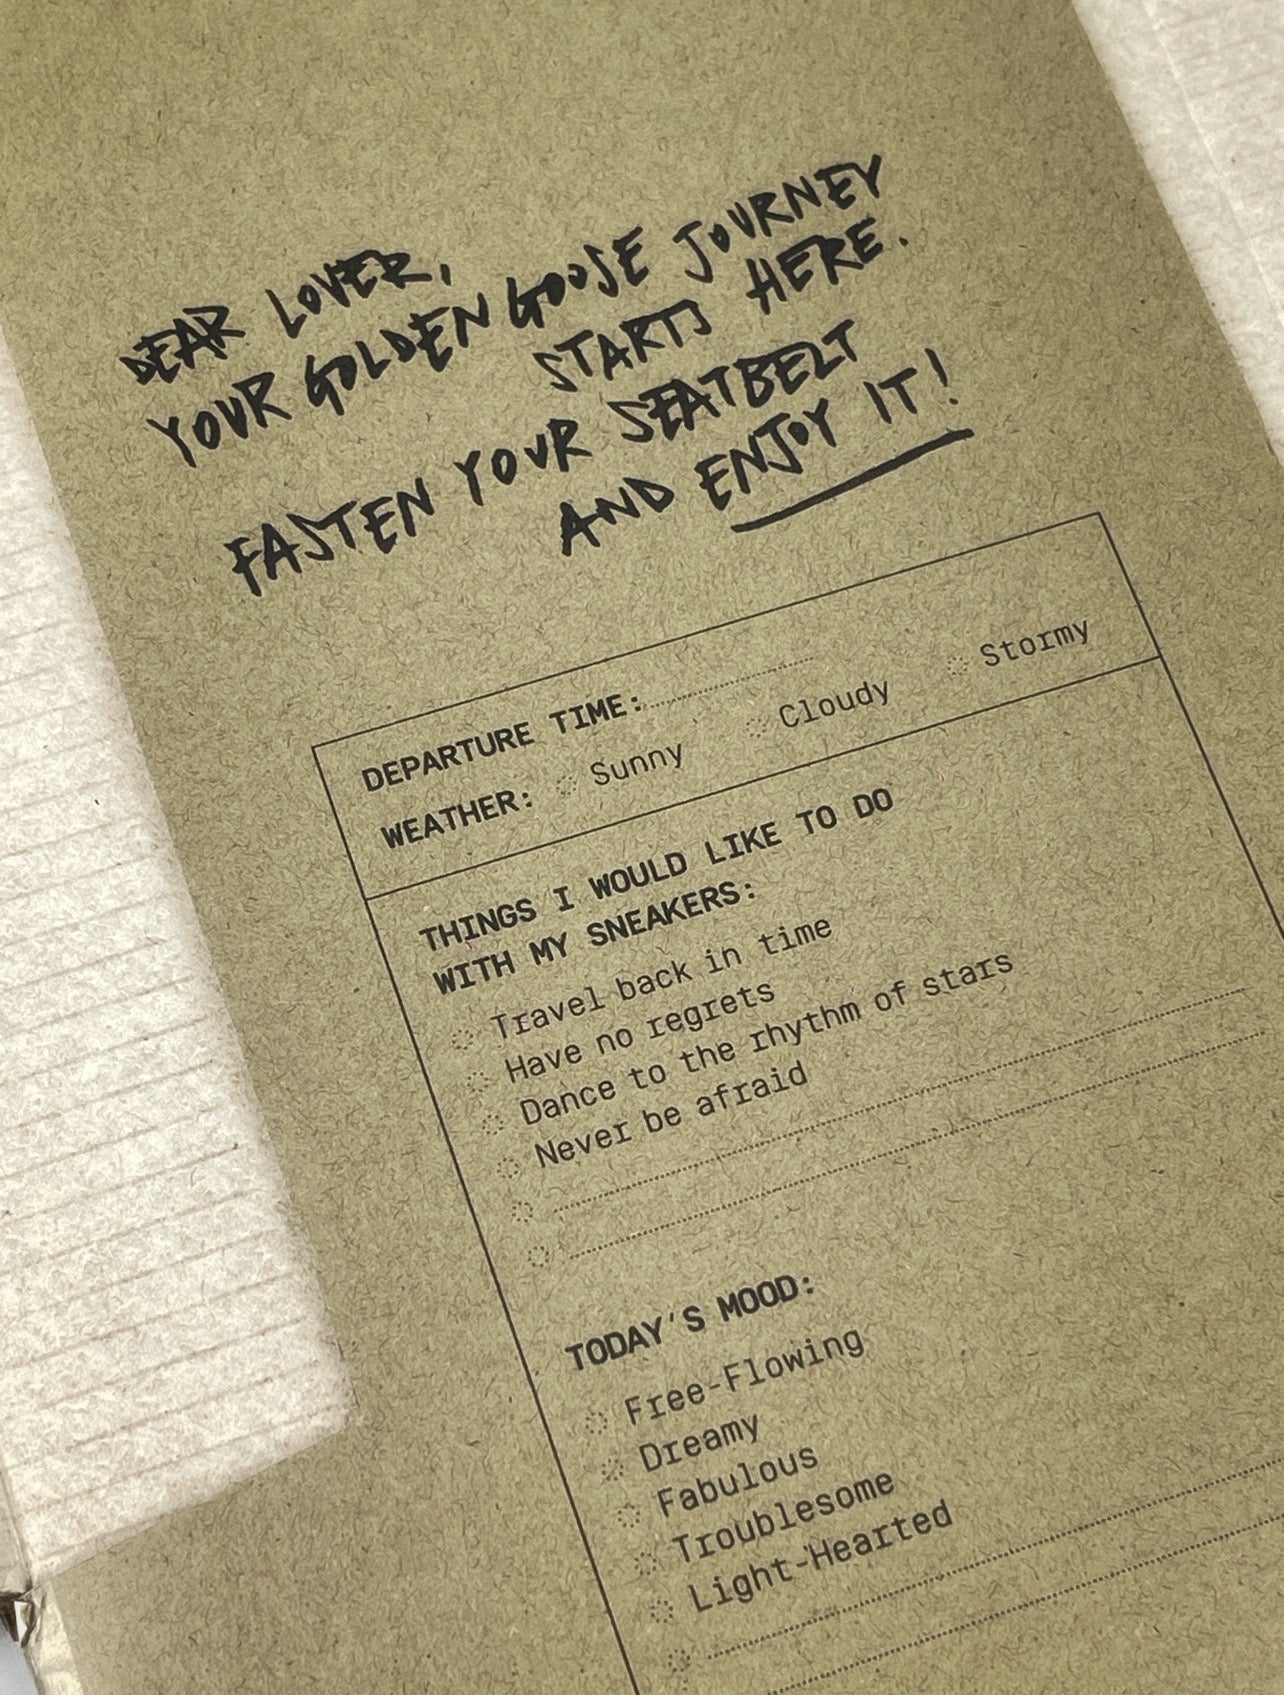 DEAR LOVER,
YOUR GOLDEN GOOSE JOURNEY
STARTS HERE.
FASTEN YOUR SEATBELT
AND ENJOY IT!
DEPARTURE TIME:
WEATHER: Sunny Cloudy Stormy
THINGS I WOULD LIKE TO DO
WITH MY SNEAKERS:
Travel back in time
Have no regrets
Dance to the rhythm of stars
Never be afraid
TODAY'S MOOD:
Free-Flowing
Dreamy
Fabulous
Troublesome
Light-Hearted